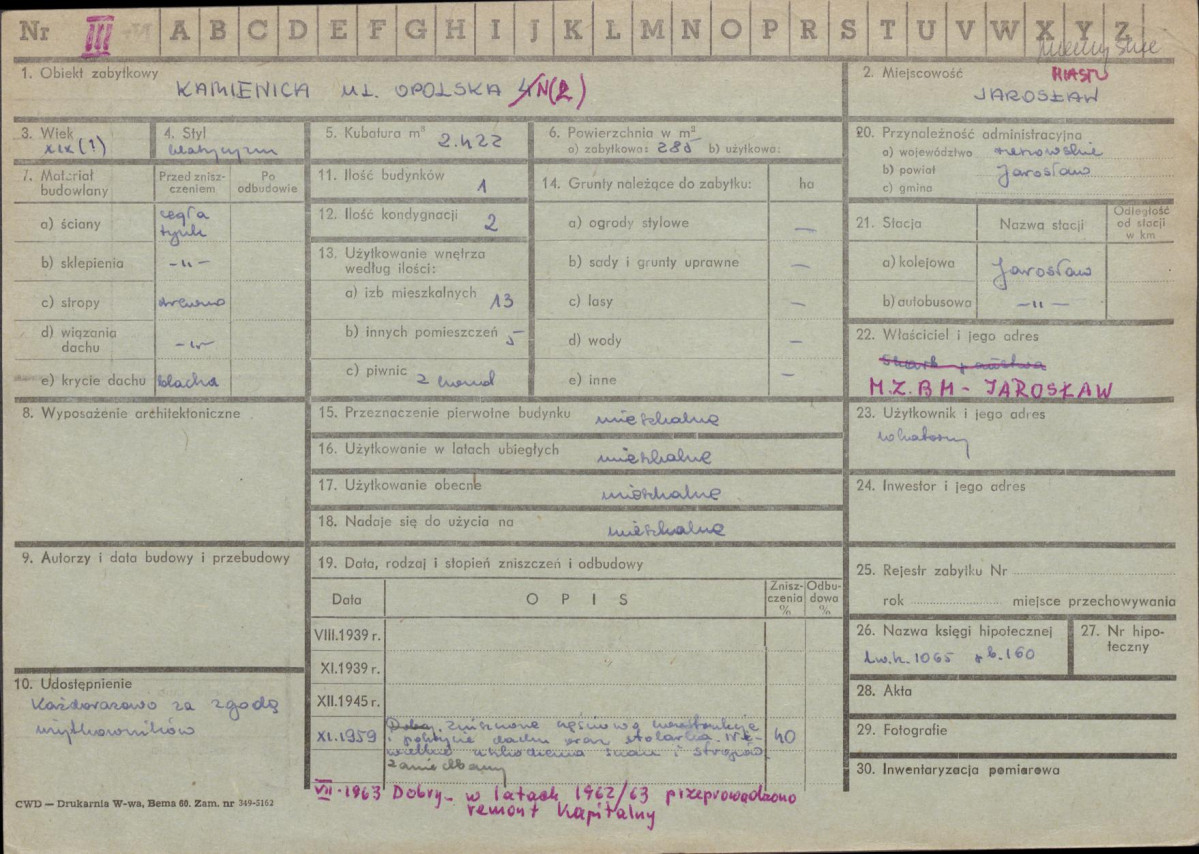 Nr III A B C D E F G H I J K L M N O P R S T U V W X Y Z
1. Obiekt zabytkowy
KAMIENICA UL. OPOLSKA 4 N(2)
2. Miejscowość MIASTO
JAROSŁAW
3. Wiek
XIX (?)
4. Styl
klasycyzm
5. Kubatura m³
2.422
6. Powierzchnia w m²
a) zabytkowa: 285 b) użytkowa:
20. Przynależność administracyjna
a) województwo rzeszowskie
b) powiat Jarosław
c) gmina
7. Materiał budowlany
Przed zniszczeniem
Po odbudowie
a) ściany cegła tynk
b) sklepienia -„-
c) stropy drewno
d) wiązania dachu -„-
e) krycie dachu blacha
11. Ilość budynków 1
12. Ilość kondygnacji 2
13. Użytkowanie wnętrza według ilości:
a) izb mieszkalnych 13
b) innych pomieszczeń 5
c) piwnic 2
14. Grunty należące do zabytku: ha
a) ogrody stylowe —
b) sady i grunty uprawne —
c) lasy —
d) wody —
e) inne —
21. Stacja
Nazwa stacji
Odległość od stacji w km
a) kolejowa Jarosław
b) autobusowa -„-
22. Właściciel i jego adres
Skarb państwa
M.Z.B.M - JAROSŁAW
8. Wyposażenie architektoniczne
15. Przeznaczenie pierwotne budynku mieszkalne
16. Użytkowanie w latach ubiegłych mieszkalne
17. Użytkowanie obecne mieszkalne
18. Nadaje się do użycia na mieszkalne
23. Użytkownik i jego adres
lokatorzy
24. Inwestor i jego adres
9. Autorzy i data budowy i przebudowy
19. Data, rodzaj i stopień zniszczeń i odbudowy
Data
O P I S
Zniszczenia %
Odbudowa %
VIII.1939 r.
XI.1939 r.
XII.1945 r.
XI.1959
zniszczone częściowo konstrukcje
i pokrycie dachu oraz stolarka. Nie-
wielkie uszkodzenia ścian i stropów
zaniedbany
40
VII.1963 Dobry - w latach 1962/63 przeprowadzono
remont kapitalny
25. Rejestr zabytku Nr
rok miejsce przechowywania
26. Nazwa księgi hipotecznej
Lw.h. 1065 b.160
27. Nr hipoteczny
10. Udostępnienie
Każdorazowo za zgodą
użytkowników
28. Akta
29. Fotografie
30. Inwentaryzacja pomiarowa
CWD — Drukarnia W-wa, Bema 60. Zam. nr 349-5162